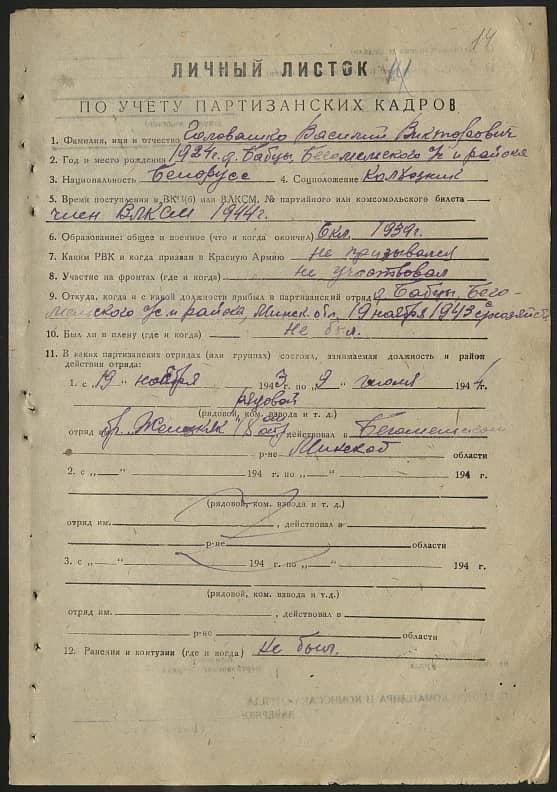 14
ЛИЧНЫЙ ЛИСТОК
ПО УЧЕТУ ПАРТИЗАНСКИХ КАДРОВ
1. Фамилия, имя и отчество Головашко Василий Викторович
2. Год и место рождения 1924 г. д. Бабцы, Бегомльского с/с и района
3. Национальность Белорусс 4. Соцположение Колхозник
5. Время поступления в ВКП(б) или ВЛКСМ, № партийного или комсомольского билета
член ВЛКСМ 1944 г.
6. Образование: общее и военное (что и когда окончил) 6 кл. 1939 г.
7. Каким РВК и когда призван в Красную Армию не призывался
8. Участие на фронтах (где и когда) не участвовал
9. Откуда, когда и с какой должности прибыл в партизанский отряд д. Бабцы, Бего-
мльского с/с и района, Минск. обл., 19 ноября 1943 с
10. Был ли в плену (где и когда) Не был.
11. В каких партизанских отрядах (или группах) состоял, занимаемая должность и район
действия отряда:
1. с „19" ноября 1943 г. по „2" июля 1944 г.
рядовой
(рядовой, ком. взвода и т. д.)
отряд бр. „Железняк" действовал в Бегомльском
р-не Минской области
2. с „—" 194 г. по „—" 194 г.
(рядовой, ком. взвода и т. д.)
отряд им. , действовал в
р-не области
3. с „—" 194 г. по „—" 194 г.
(рядовой, ком. взвода и т.д.)
отряд им. , действовал в
р-не области
12. Ранения и контузии (где и когда) не был.